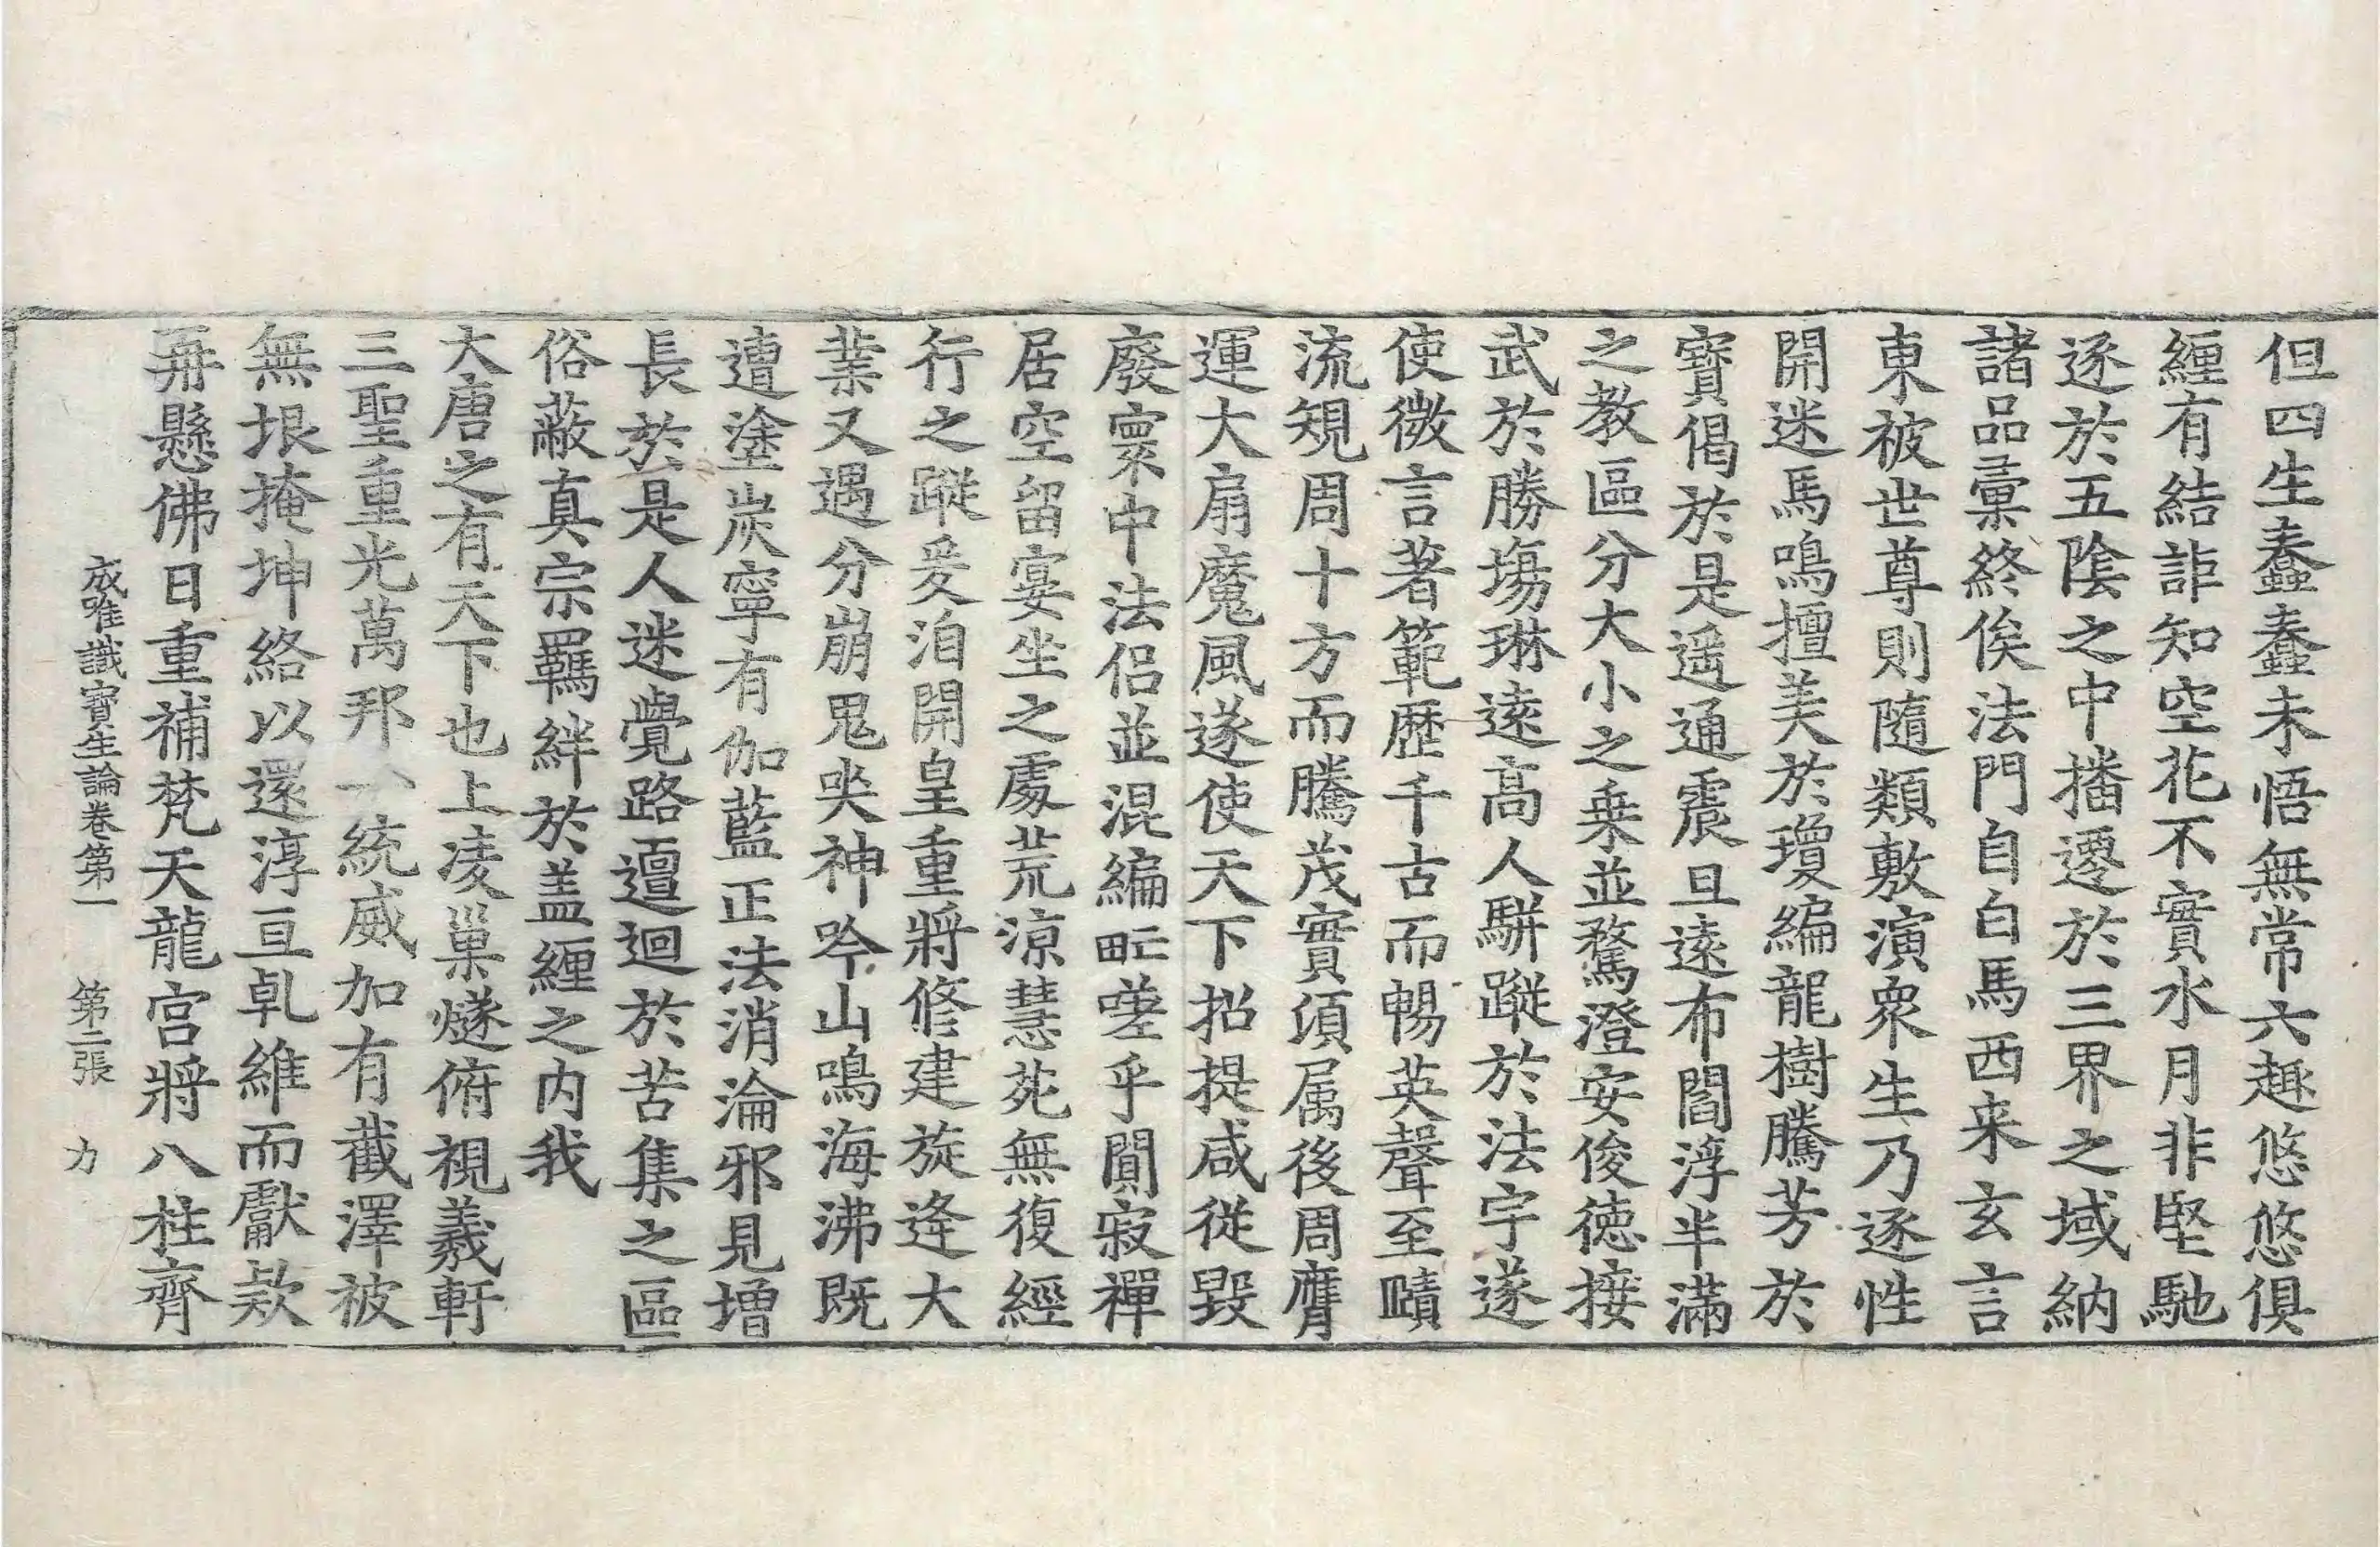 但四生蠢蠢未悟無常六趣悠悠俱
纏有結詎知空花不實水月非堅馳
逐於五陰之中播遷於三界之域納
諸品彙終俟法門自白馬西来玄言
東被世尊則隨類敷演衆生乃逐性
開迷馬鳴擅美於瓊編龍樹騰芳於
寶偈於是遥通震旦遠布閻浮半滿
之教區分大小之乗並騖澄安俊徳接
武於勝場琳遠高人駢蹤於法宇遂
使微言著範歴千古而暢英聲至賾
流規周十方而騰茂實湏属後周膺
運大扇魔風遂使天下招提咸従毀
廢寰中法侣並混編甿嗟乎闃寂禪
居空留宴坐之處荒凉慧苑無復經
行之蹤爰洎開皇重將修建旋逄大
業又遇分崩鬼哭神吟山鳴海沸既
遭塗炭寧有伽藍正法消淪邪見增
長於是人迷覺路邅迴於苦集之區
俗蔽真宗羈絆於盖纏之内我
大唐之有天下也上凌巢燧俯視羲軒
三聖重光萬邦一統威加有截澤被
無垠掩坤絡以還淳亘乹維而獻款
再懸佛日重補梵天龍宫將八柱齊
成唯識寶生論卷第一 第二張 力